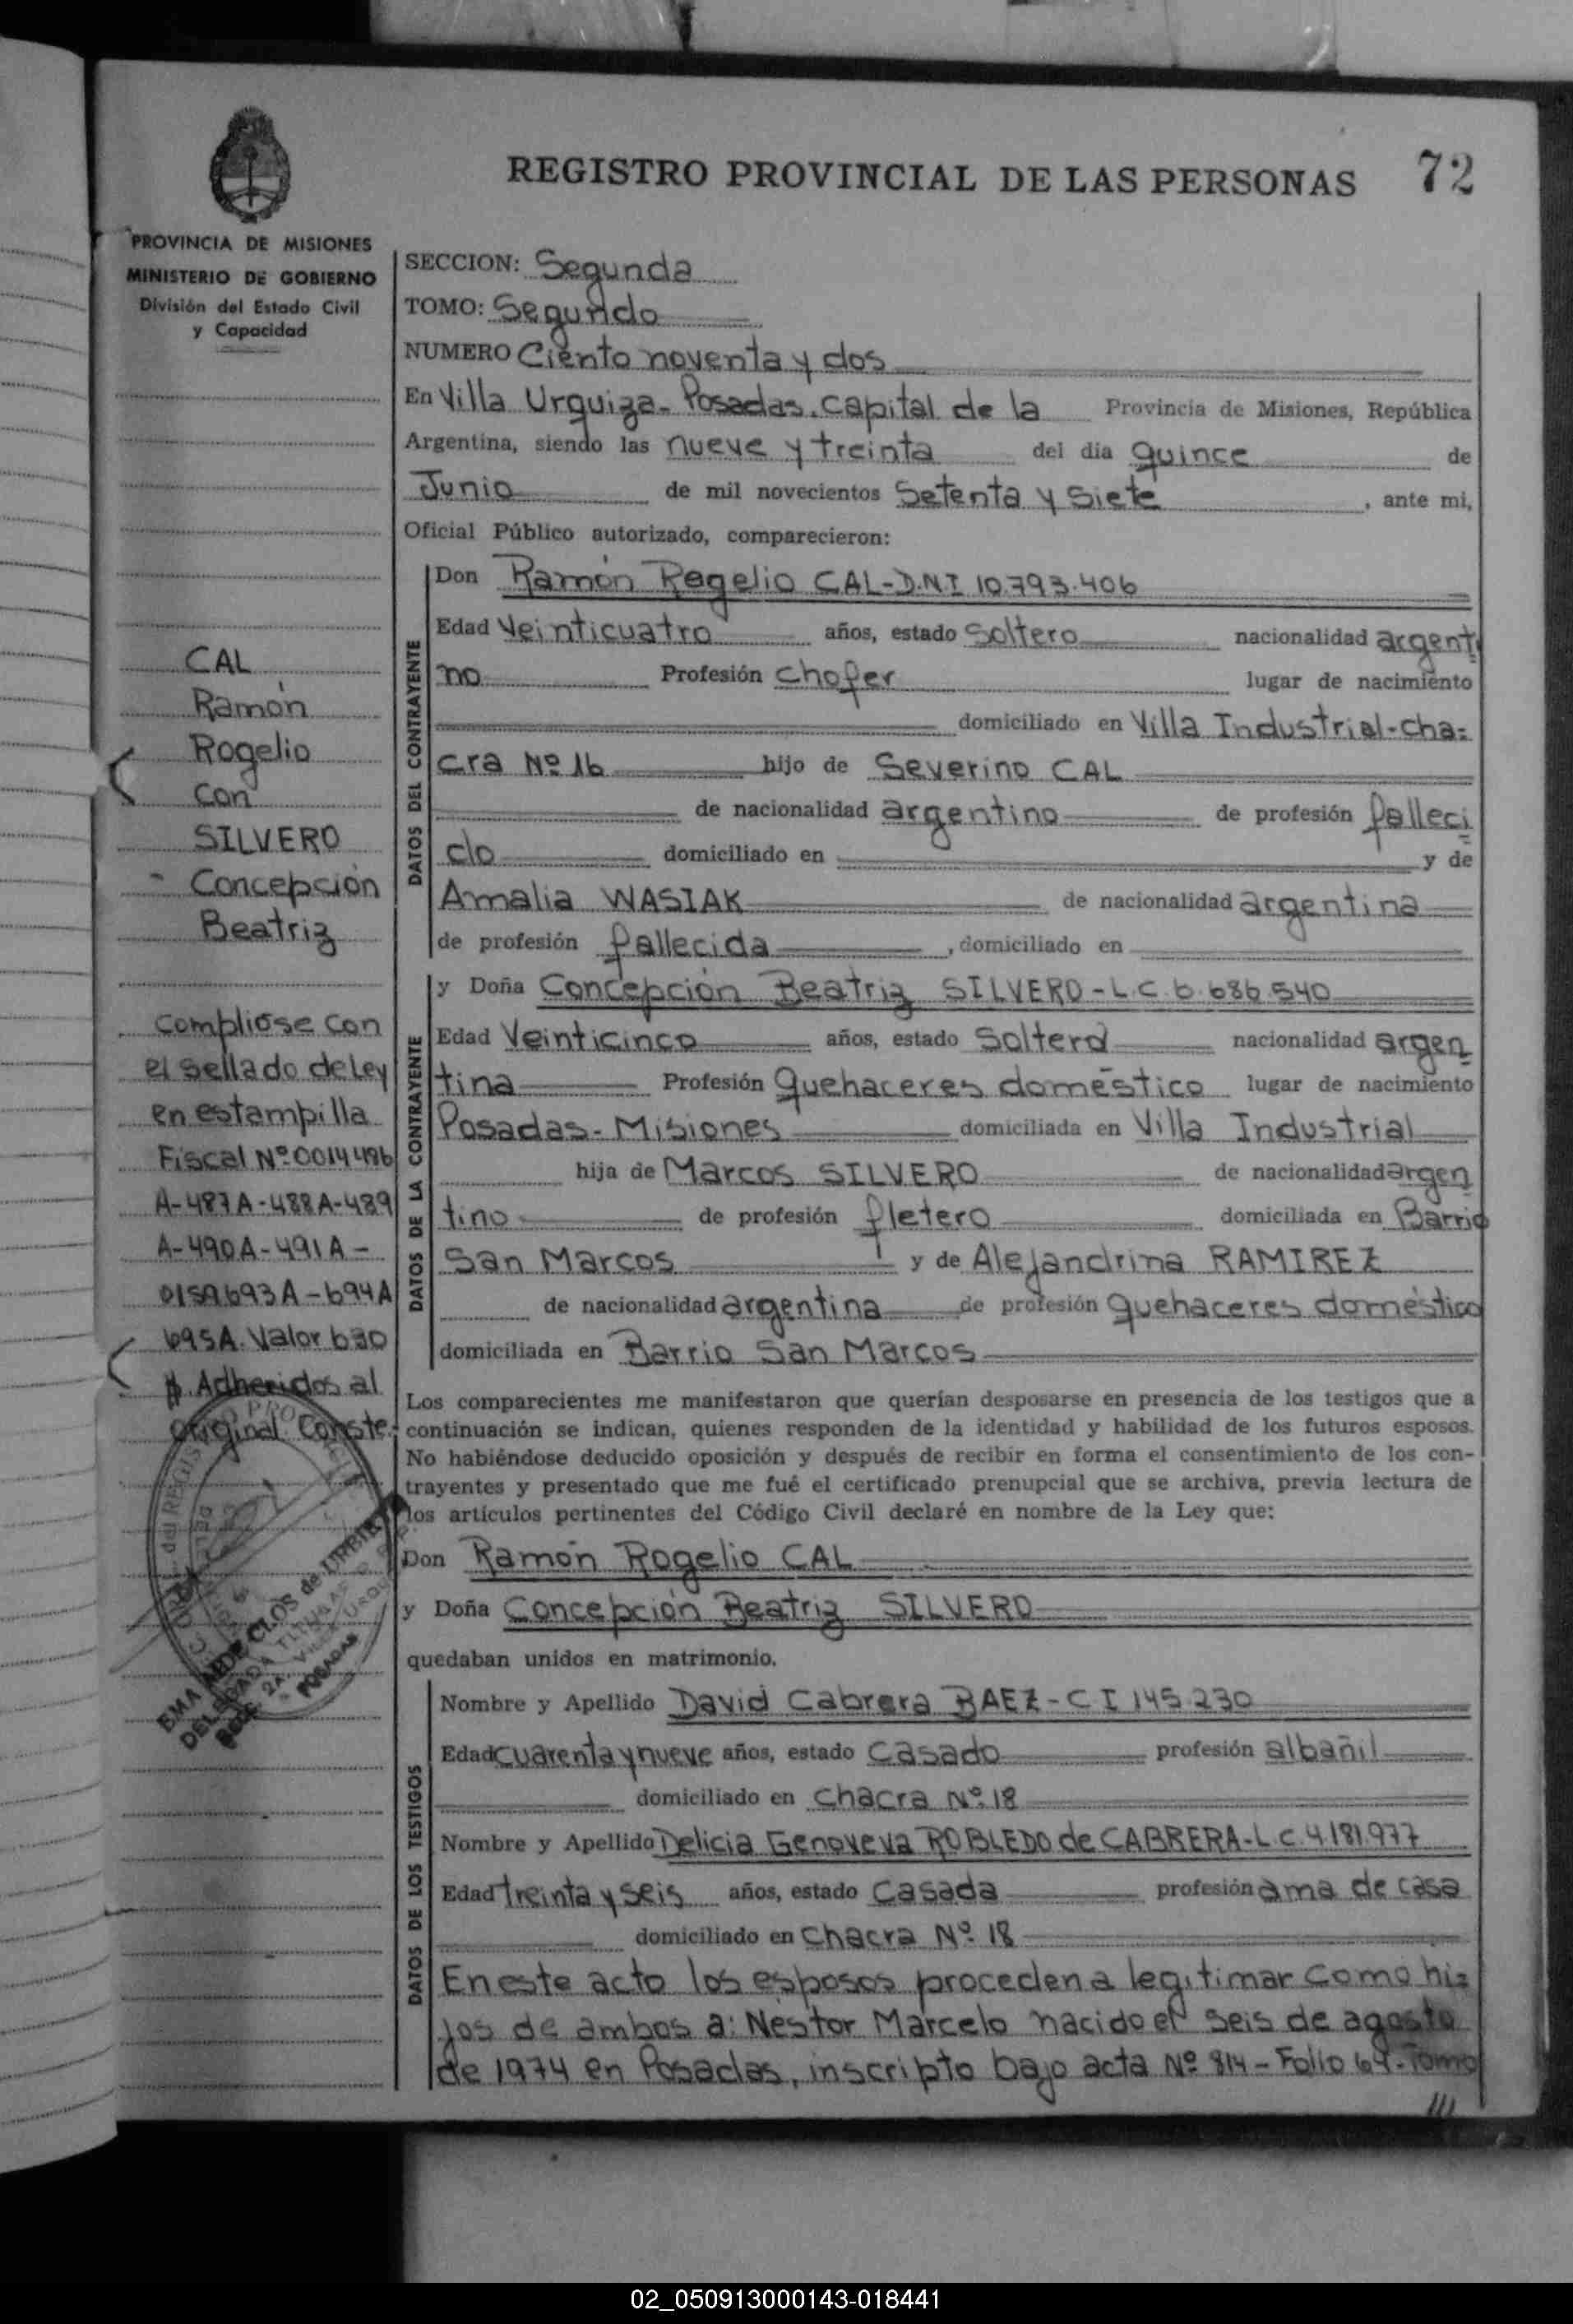 REGISTRO PROVINCIAL DE LAS PERSONAS 72
PROVINCIA DE MISIONES
MINISTERIO DE GOBIERNO
División del Estado Civil
y Capacidad
CAL
Ramón
Rogelio
con
SILVERO
Concepción
Beatriz
Compliose con
el sellado de Ley
en estampilla
Fiscal Nº 0014486
A-487A-488A-489
A-490A-491A-
0159693A-694A
695A. Valor 630
$. Adheridos al
Original. Conste.
EMA AEDE CLOS de URBIETA
DELEGADA TITULAR
POSADAS
SECCION: Segunda
TOMO: Segundo
NUMERO Ciento noventa y dos
En Villa Urquiza - Posadas, capital de la Provincia de Misiones, República
Argentina, siendo las nueve y treinta del día quince de
Junio de mil novecientos Setenta y Siete, ante mi,
Oficial Público autorizado, comparecieron:
DATOS DEL CONTRAYENTE
Don Ramón Rogelio CAL-D.N.I 10.793.406
Edad Veinticuatro años, estado Soltero nacionalidad argenti
no Profesión chofer lugar de nacimiento
domiciliado en Villa Industrial-cha-
cra Nº 16 hijo de Severino CAL
de nacionalidad argentino de profesión falleci
do domiciliado en y de
Amalia WASIAK de nacionalidad argentina
de profesión fallecida, domiciliado en
DATOS DE LA CONTRAYENTE
y Doña Concepción Beatriz SILVERO-L.C.6.686.540
Edad Veinticinco años, estado Soltera nacionalidad argen
tina Profesión Quehaceres doméstico lugar de nacimiento
Posadas-Misiones domiciliada en Villa Industrial
hija de Marcos SILVERO de nacionalidad argen
tino de profesión fletero domiciliada en Barrio
San Marcos y de Alejandrina RAMIREZ
de nacionalidad argentina de profesión Quehaceres doméstico
domiciliada en Barrio San Marcos
Los comparecientes me manifestaron que querían desposarse en presencia de los testigos que a
continuación se indican, quienes responden de la identidad y habilidad de los futuros esposos.
No habiéndose deducido oposición y después de recibir en forma el consentimiento de los con-
trayentes y presentado que me fué el certificado prenupcial que se archiva, previa lectura de
los artículos pertinentes del Código Civil declaré en nombre de la Ley que:
Don Ramón Rogelio CAL
y Doña Concepción Beatriz SILVERO
quedaban unidos en matrimonio.
DATOS DE LOS TESTIGOS
Nombre y Apellido David Cabrera BAEZ-C I 145.230
Edad cuarenta y nueve años, estado Casado profesión albañil
domiciliado en Chacra Nº 18
Nombre y Apellido Delicia Genoveva ROBLEDO de CABRERA-L.C.4.181.977
Edad treinta y seis años, estado Casada profesión ama de casa
domiciliado en Chacra Nº 18
En este acto los esposos proceden a legitimar como hi-
jos de ambos a: Nestor Marcelo nacido el seis de agosto
de 1974 en Posadas, inscripto bajo acta Nº 814-Folio 64-Tomo
///
02_050913000143-018441